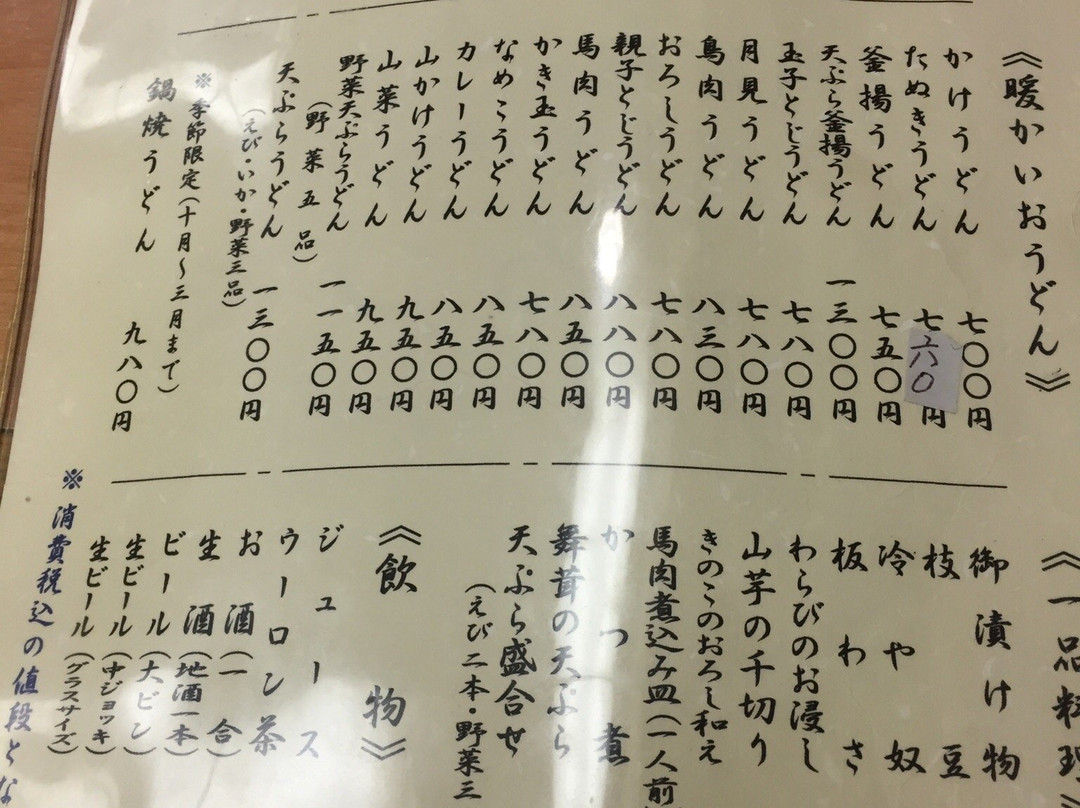 《暖かいおうどん》
かけうどん 七〇〇円
たぬきうどん 七六〇円
釜揚うどん 七五〇円
天ぷら釜揚うどん 一三〇〇円
玉子とじうどん 七八〇円
月見うどん 七八〇円
鳥肉うどん 八三〇円
おろしうどん 七八〇円
親子とじうどん 八八〇円
馬肉うどん 八五〇円
かき玉うどん 七八〇円
なめこうどん 八五〇円
カレーうどん 八五〇円
山かけうどん 九五〇円
山菜うどん 九五〇円
野菜天ぷらうどん 一一五〇円
(野菜五品)
天ぷらうどん 一三〇〇円
(えび・いか・野菜三品)
※季節限定(十月～三月まで)
鍋焼うどん 九八〇円
《一品料理》
御漬け物
枝豆
冷や奴
板わさ
わらびのお浸し
山芋の千切り
きのこのおろし和え
馬肉煮込み皿(一人前
かつ煮
舞茸の天ぷら
天ぷら盛合せ
(えび二本・野菜三
《飲物》
ジュース
ウーロン茶
お酒(一合)
生酒(地酒一本)
ビール(大ビン)
生ビール(中ジョッキ)
生ビール(グラスサイズ)
※消費税込の値段とな